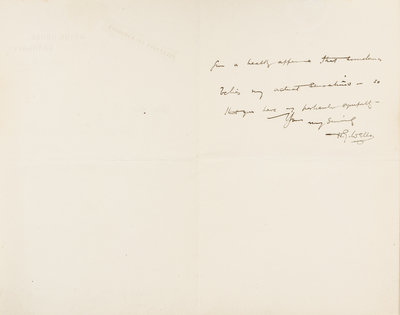 for a healthy appearance that sometimes
belies my actual sensations – so
that you have my particular sympathy –
Yours
very sincerely
H.G. Wells